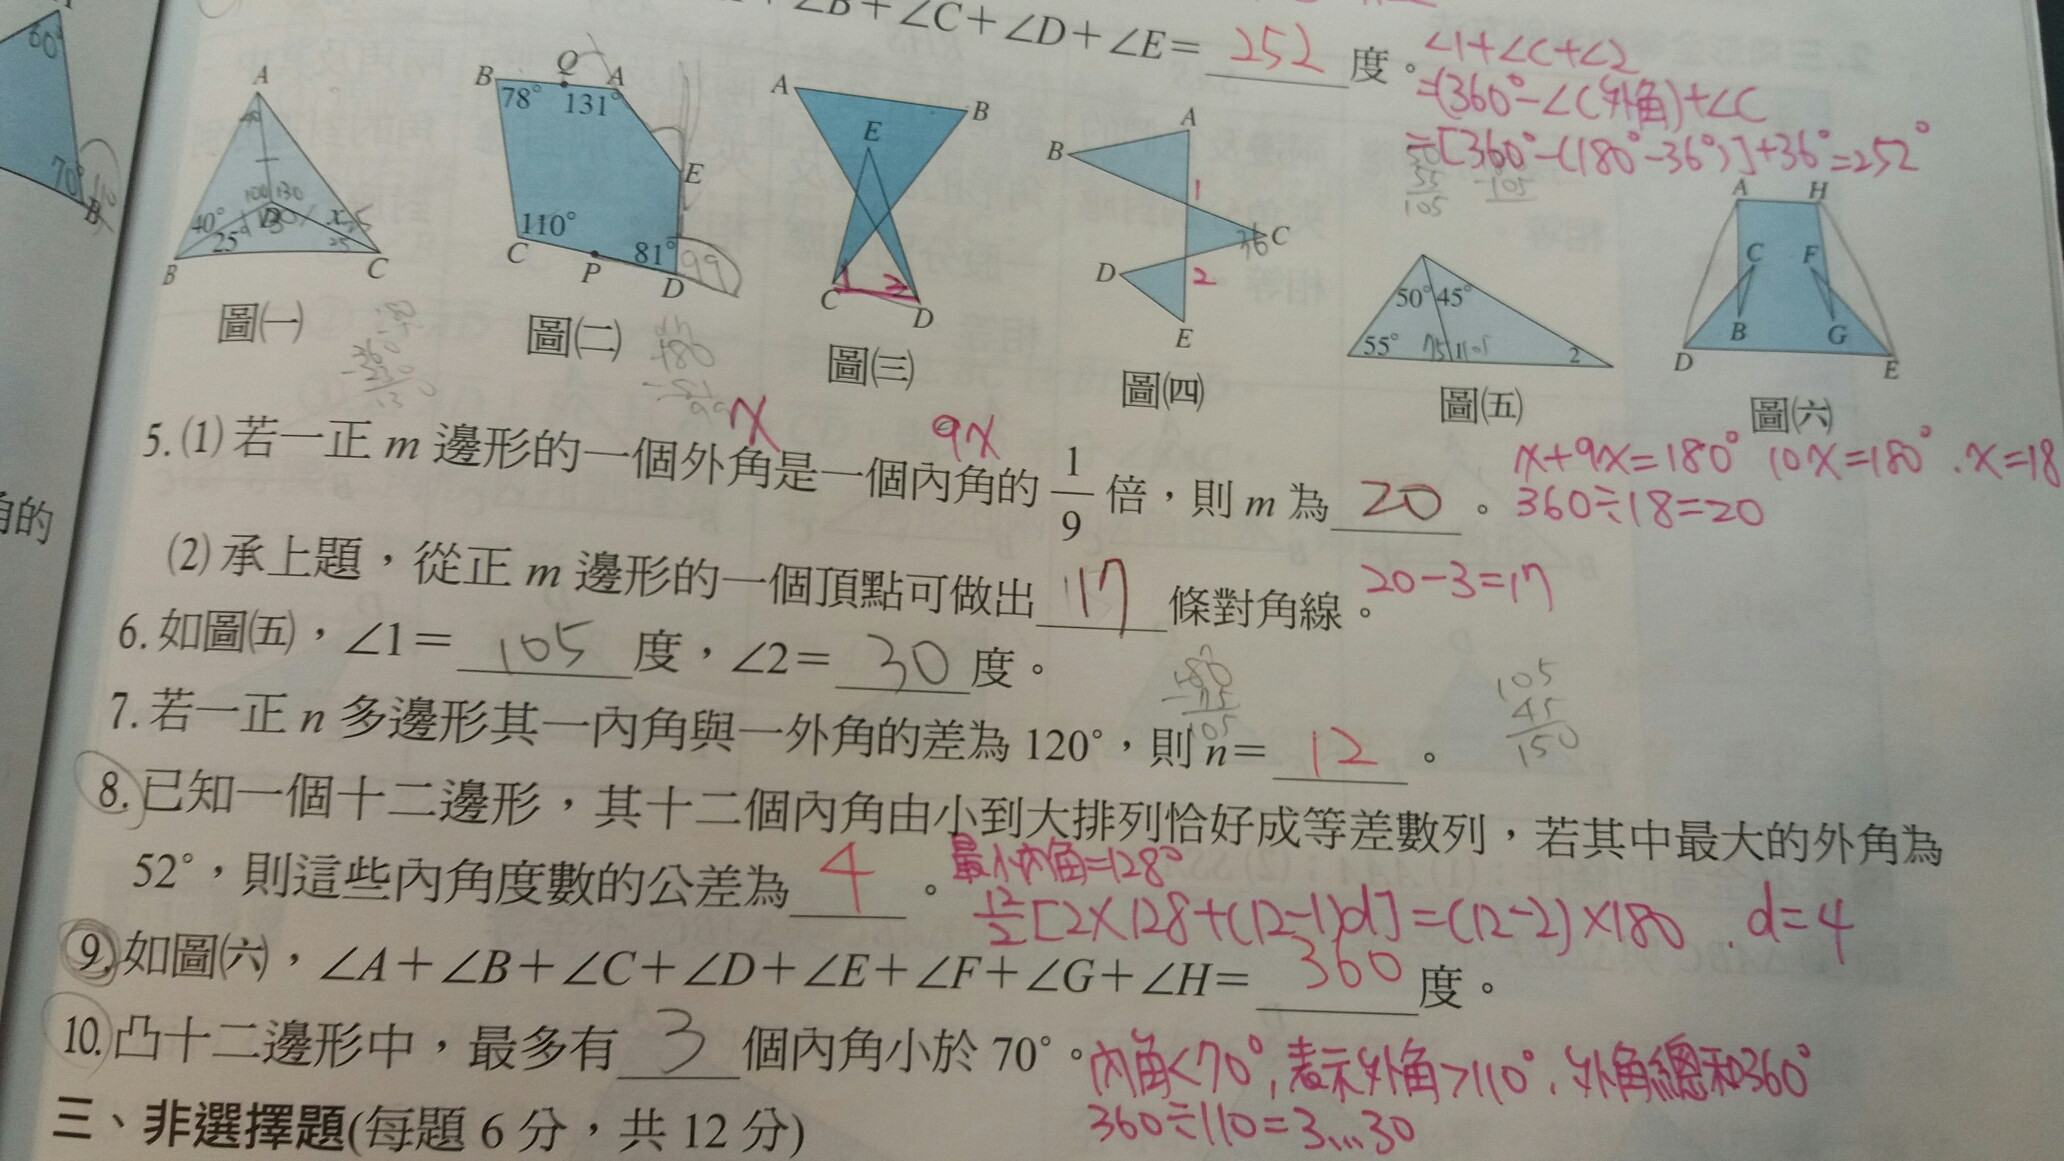 ∠B+∠C+∠D+∠E= 252 度。
∠1+∠C+∠2
=(360°-∠C外角)+∠C
=[360°-(180°-36°)]+36°=252°
60°
70°
B
A
40°
25°
100
130
D
x
25
B
C
圖㈠
Q
B
A
78°
131°
E
110°
81°
99
C
P
D
圖㈡
A
B
E
1
2
C
D
圖㈢
A
B
1
36
C
D
2
E
圖㈣
50
55
105
50°
45°
55°
75
1
105
2
圖㈤
A
H
C
F
B
G
D
E
圖㈥
x
9x
5.(1)若一正 m 邊形的一個外角是一個內角的 1/9 倍，則 m 為 20 。
x+9x=180° 10x=180°. x=18
360÷18=20
角的
(2)承上題，從正 m 邊形的一個頂點可做出 17 條對角線。
20-3=17
6.如圖㈤，∠1= 105 度，∠2= 30 度。
180
-75
105
105
45
150
7.若一正 n 多邊形其一內角與一外角的差為 120°，則 n= 12 。
8.已知一個十二邊形，其十二個內角由小到大排列恰好成等差數列，若其中最大的外角為
52°，則這些內角度數的公差為 4 。
最小內角=128°
12/2[2×128+(12-1)d]=(12-2)×180 . d=4
9.如圖㈥，∠A+∠B+∠C+∠D+∠E+∠F+∠G+∠H= 360 度。
10.凸十二邊形中，最多有 3 個內角小於 70°。
內角<70°, 表示外角>110°, 外角總和360°
360÷110=3...30
三、非選擇題(每題 6 分，共 12 分)